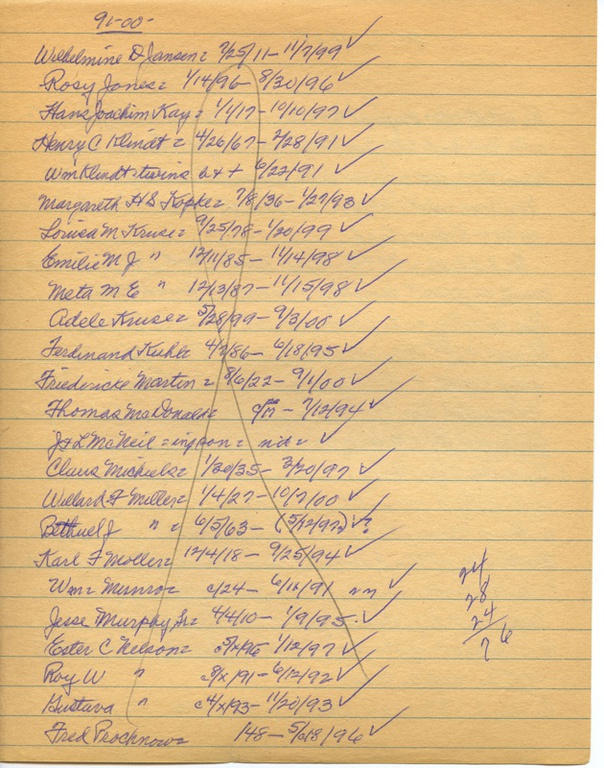 91-00-
Wilhelmine D Jansen = 2/25/11 - 11/7/99 ✓
Rosy Jones = 1/14/96 - 8/30/96 ✓
Hans Joachim Kay = 1/1/17 - 10/10/97 ✓
Henry C Klindt = 4/26/67 - 2/28/91 ✓
Wm Klindt = twins b + + 6/22/91 ✓
Margareth H S Kopke = 7/8/36 - 1/27/93 ✓
Louisa M Kruse = 9/25/78 - 1/20/99 ✓
Emilie M J " 12/11/85 - 11/14/98 ✓
Meta M E " 12/13/87 - 11/15/98 ✓
Adele Kruse = 5/28/99 - 9/3/00 ✓
Ferdinand Kuhl = 4/7/86 - 6/18/95 ✓
Friedericke Martin = 8/6/22 - 9/1/00 ✓
Thomas McDonald = - 7/12/94 ✓
J + L McNeil = = nid = ✓
Claus Michels = 1/30/35 - 3/20/97 ✓
Willard F Miller = 1/4/27 - 10/7/00 ✓
Bethuel J " = 6/5/63 - (5/12/92) ✓ ?
Karl F Moller = 12/4/18 - 9/25/94 ✓
Wm = Munro = c/24 - 6/16/91 nm ✓
Jesse Murphy Sr = 4/4/10 - 1/9/95 ✓
Ester C Nelson = 1/12/97 ✓
Roy W " c8/x/91 - 6/12/92 ✓
Gustava " c4/x/93 - 11/20/93 ✓
Fred Prochnow = 148 - 5/18/96 ✓
24
28
24
76